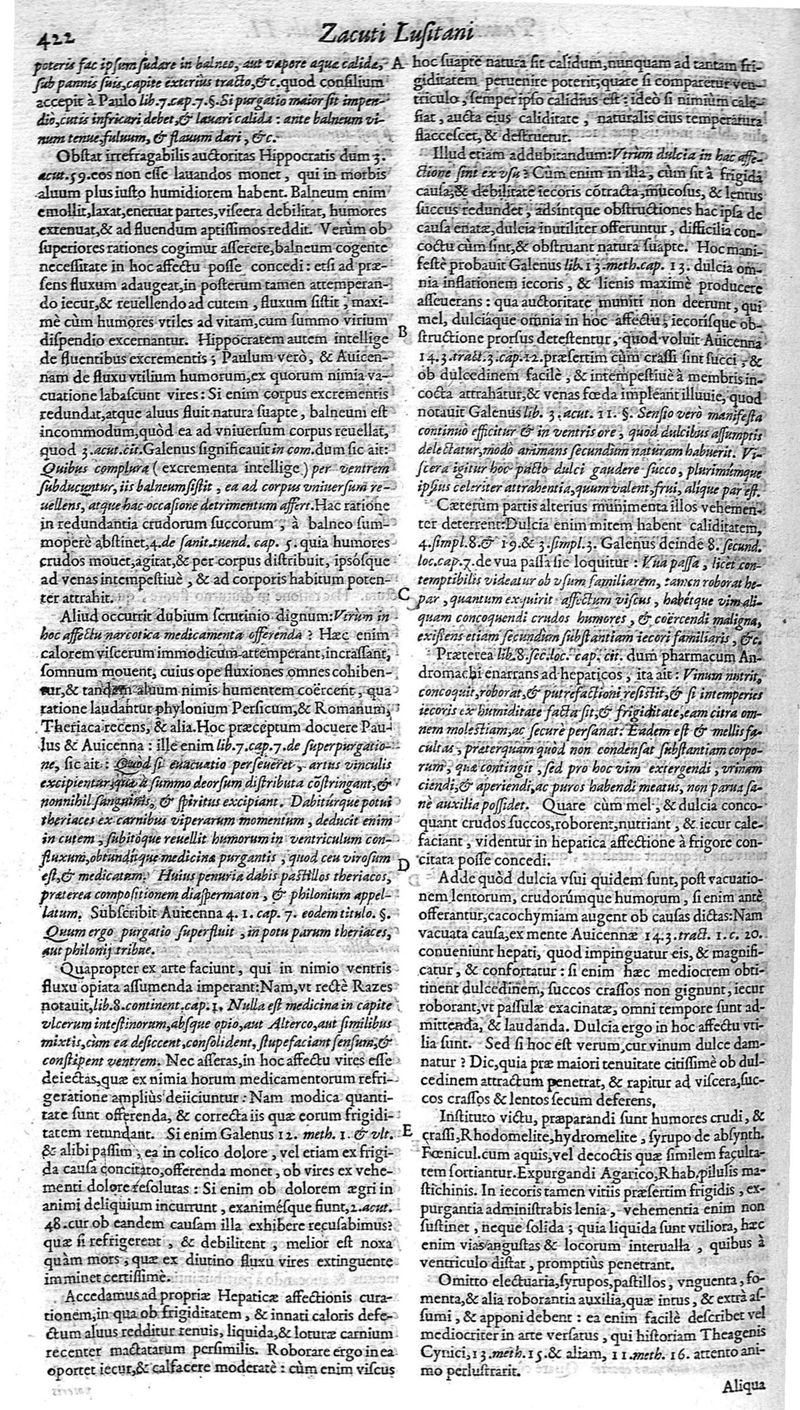 422
Zacuti Lusitani
poteris fac ipsum sudare in balneo, aut vapore aquæ calidæ,
sub pannis suis, capite exterius tracto, &c. quod consilium
accepit à Paulo lib. 7. cap. 7. §. Si purgatio maior sit impen-
diò, cutis infricari debet, & lauari calida : ante balneum vi-
num tenue, fuluum, & flauum dari, &c.
Obstat irrefragabilis auctoritas Hippocratis dum 3.
acut. 59. eos non esse lauandos monet, qui in morbis
aluum plus iusto humidiorem habent. Balneum enim
emollit, laxat, eneruat partes, viscera debilitat, humores
extenuat, & ad fluendum aptissimos reddit. Verùm ob
superiores rationes cogimur asserere, balneum cogente
necessitate in hoc affectu posse concedi : etsi ad præ-
sens fluxum adaugeat, in posterum tamen attemperan-
do iecur, & reuellendo ad cutem, fluxum sistit, maxi-
mè cùm humores vtiles ad vitam, cum summo virium
dispendio excernantur. Hippocratem autem intellige
de fluentibus excrementis ; Paulum verò, & Auicen-
nam de fluxu vtilium humorum, ex quorum nimia va-
cuatione labascunt vires : Si enim corpus excrementis
redundat, atque aluus fluit natura suapte, balneum est
incommodum, quòd ea ad vniuersum corpus reuellat,
quod 3. acut. cit. Galenus significauit in com. dum sic ait :
Quibus complura ( excrementa intellige ) per ventrem
subducuntur, iis balneum sistit, ea ad corpus vniuersum re-
uellens, atque hac occasione detrimentum affert. Hac ratione
in redundantia crudorum succorum, à balneo sum-
moperè abstinet, 4. de sanit. tuend. cap. 5. quia humores
crudos mouet, agitat, & per corpus distribuit, ipsósque
ad venas intempestiuè, & ad corporis habitum poten-
ter attrahit.
Aliud occurrit dubium scrutinio dignum: Vtrùm in
hoc affectu narcotica medicamenta offerenda ? Hæc enim
calorem viscerum immodicum attemperant, incrassant,
somnum mouent, cuius ope fluxiones omnes cohiben-
tur, & tandem aluum nimis humentem coërcent, qua
ratione laudantur phylonium Persicum, & Romanum,
Theriaca recens, & alia. Hoc præceptum docuere Pau-
lus & Auicenna : ille enim lib. 7. cap. 7. de superpurgatio-
ne, sic ait : Quod si euacuatio perseueret, artus vinculis
excipientur, quæ à summo deorsum distributa cõstringant, &
nonnihil sanguinis, & spiritus excipiant. Dabitúrque potui
theriaces ex carnibus viperarum momentum, deducit enim
in cutem, subitóque reuellit humorum in ventriculum con-
fluxum, obtundítque medicinæ purgantis, quod ceu virosum
est, & medicatum. Huius penuria dabis pastillos theriacos,
præterea compositionem diaspermaton, & philonium appel-
latum. Subscribit Auicenna 4. 1. cap. 7. eodem titulo. §.
Quum ergo purgatio superfluit, in potu parum theriaces,
aut philonij tribue.
Quapropter ex arte faciunt, qui in nimio ventris
fluxu opiata assumenda imperant: Nam, vt rectè Razes
notauit, lib. 8. continent. cap. 1. Nulla est medicina in capite
vlcerum intestinorum, absque opio, aut Alterco, aut similibus
mixtis, cum ea desiccent, consolident, stupefaciant sensum, &
constipent ventrem. Nec asseras, in hoc affectu vires esse
deiectas, quæ ex nimia horum medicamentorum refri-
geratione ampliùs deiiciuntur : Nam modica quanti-
tate sunt offerenda, & correcta iis quæ eorum frigidi-
tatem retundant. Si enim Galenus 12. meth. 1. & vlt.
& alibi passim, ea in colico dolore, vel etiam ex frigi-
da causa concitato, offerenda monet, ob vires ex vehe-
menti dolore resolutas : Si enim ob dolorem ægri in
animi deliquium incurrunt, exanimésque fiunt, 2. acut.
48. cur ob eandem causam illa exhibere recusabimus?
quæ si refrigerent, & debilitent ; melior est noxa
quàm mors, quæ ex diutino fluxu vires extinguente
imminet certissimè.
Accedamus ad propriæ Hepaticæ affectionis cura-
tionem, in qua ob frigiditatem, & innati caloris defe-
ctum aluus redditur tenuis, liquida, & loturæ carnium
recenter mactatarum persimilis. Roborare ergo in ea
oportet iecur, & calfacere moderatè : cùm enim viscus
A
B
C
D
E
hoc suapte natura sit calidum, nunquam ad tantam fri-
giditatem peruenire poterit; quare si comparetur ven-
triculo, semper ipso calidius est : ideò si nimium cale-
fiat, aucta eius caliditate, naturalis eius temperatura
flaccescet, & destruetur.
Illud etiam addubitandum: Vtrùm dulcia in hac affe-
ctione sint ex vsu ? Cùm enim in illa, cùm sit à frigida
causa, & debilitate iecoris cõtracta, mucosus, & lentus
succus redundet, adsintque obstructiones hac ipsa de
causa enatæ, dulcia inutiliter offeruntur, difficilia con-
coctu cùm sint, & obstruant natura suapte. Hoc mani-
festè probauit Galenus lib. 13. meth. cap. 13. dulcia om-
nia inflationem iecoris, & lienis maximè producere
asseuerans : qua auctoritate muniti non deerunt, qui
mel, dulciáque omnia in hoc affectu, iecorisque ob-
structione prorsus detestentur, quod voluit Auicenna
14. 3. tract. 3. cap. 12. præsertim cùm crassi sint succi, &
ob dulcedinem facilè, & intempestiuè à membris in-
cocta attrahãtur, & venas fœda impleant illuuie, quod
notauit Galenus lib. 3. acut. 11. §. Sensio verò manifesta
continuò efficitur & in ventris ore, quod dulcibus assumptis
delectatur, modò animans secundum naturam habuerit. Vi-
scera igitur hoc pacto dulci gaudere succo, plurimúmque
ipsius celeriter attrahentia, quum valent, frui, alique par est.
Cæterùm partis alterius munimenta illos vehemen-
ter deterrent: Dulcia enim mitem habent caliditatem,
4. simpl. 8. & 19. & 3. simpl. 3. Galenus deinde 8. secund.
loc. cap. 7. de vua passa sic loquitur : Vua passa, licet con-
temptibilis videatur ob vsum familiarem, tamen roborat he-
par, quantum exquirit affectum viscus, habétque vim ali-
quam concoquendi crudos humores, & coërcendi maligna,
existens etiam secundum substantiam iecori familiaris, &c.
Præterea lib. 8. sec. loc. cap. cit. dum pharmacum An-
dromachi enarrans ad hepaticos, ita ait : Vinum nutrit,
concoquit, roborat, & putrefactioni resistit, & si intemperies
iecoris ex humiditate facta sit, & frigiditate, eam citra om-
nem molestiam, ac securè persanat. Eadem est & mellis fa-
cultas, præterquam quòd non condensat substantiam corpo-
rum, quæ contingit, sed pro hoc vim extergendi, vrinam
ciendi, & aperiendi, ac puros habendi meatus, non parua sa-
nè auxilia possidet. Quare cùm mel, & dulcia conco-
quant crudos succos, roborent, nutriant, & iecur cale-
faciant, videntur in hepatica affectione à frigore con-
citata posse concedi.
Adde quòd dulcia vsui quidem sunt, post vacuatio-
nem lentorum, crudorúmque humorum, si enim antè
offerantur, cacochymiam augent ob causas dictas: Nam
vacuata causa, ex mente Auicennæ 14. 3. tract. 1. c. 20.
conueniunt hepati, quod impinguatur eis, & magnifi-
catur, & confortatur : si enim hæc mediocrem obti-
nent dulcedinem, succos crassos non gignunt, iecur
roborant, vt passulæ exacinatæ, omni tempore sunt ad-
mittenda, & laudanda. Dulcia ergo in hoc affectu vti-
lia sunt. Sed si hoc est verum, cur vinum dulce dam-
natur ? Dic, quia præ maiori tenuitate citissimè ob dul-
cedinem attractum penetrat, & rapitur ad viscera, suc-
cos crassos & lentos secum deferens.
Instituto victu, præparandi sunt humores crudi, &
crassi, Rhodomelite, hydromelite, syrupo de absynth.
Fœnicul. cum aquis, vel decoctis quæ similem faculta-
tem sortiantur. Expurgandi Agarico, Rhab. pilulis ma-
stichinis. In iecoris tamen vitiis præsertim frigidis, ex-
purgantia administrabis lenia, vehementia enim non
sustinet, neque solida ; quia liquida sunt vtiliora, hæc
enim vias angustas & locorum interualla, quibus à
ventriculo distat, promptiùs penetrant.
Omitto electuaria, syrupos, pastillos, vnguenta, fo-
menta, & alia roborantia auxilia, quæ intus, & extrà as-
sumi, & apponi debent : ea enim facilè describet vel
mediocriter in arte versatus, qui historiam Theagenis
Cynici, 13. meth. 15. & aliam, 11. meth. 16. attento ani-
mo perlustrarit.
Aliqua